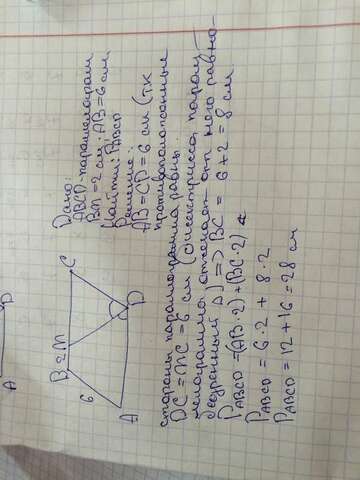 Дано:
ABCD-параллелограмм
BM=2 см; AB=6 см
Найти: PABCD
Решение:
AB=CD=6 см (т.к
противоположные
стороны параллелограмма равны.
DC=MC=6 см (биссектриса парал-
лелограмма отсекает от него равно-
бедренный Δ) => BC = 6+2=8 см
PABCD=(AB·2)+(BC·2)
PABCD= 6·2+8·2
PABCD=12+16=28 см
B 2 M C
6
A D
A D